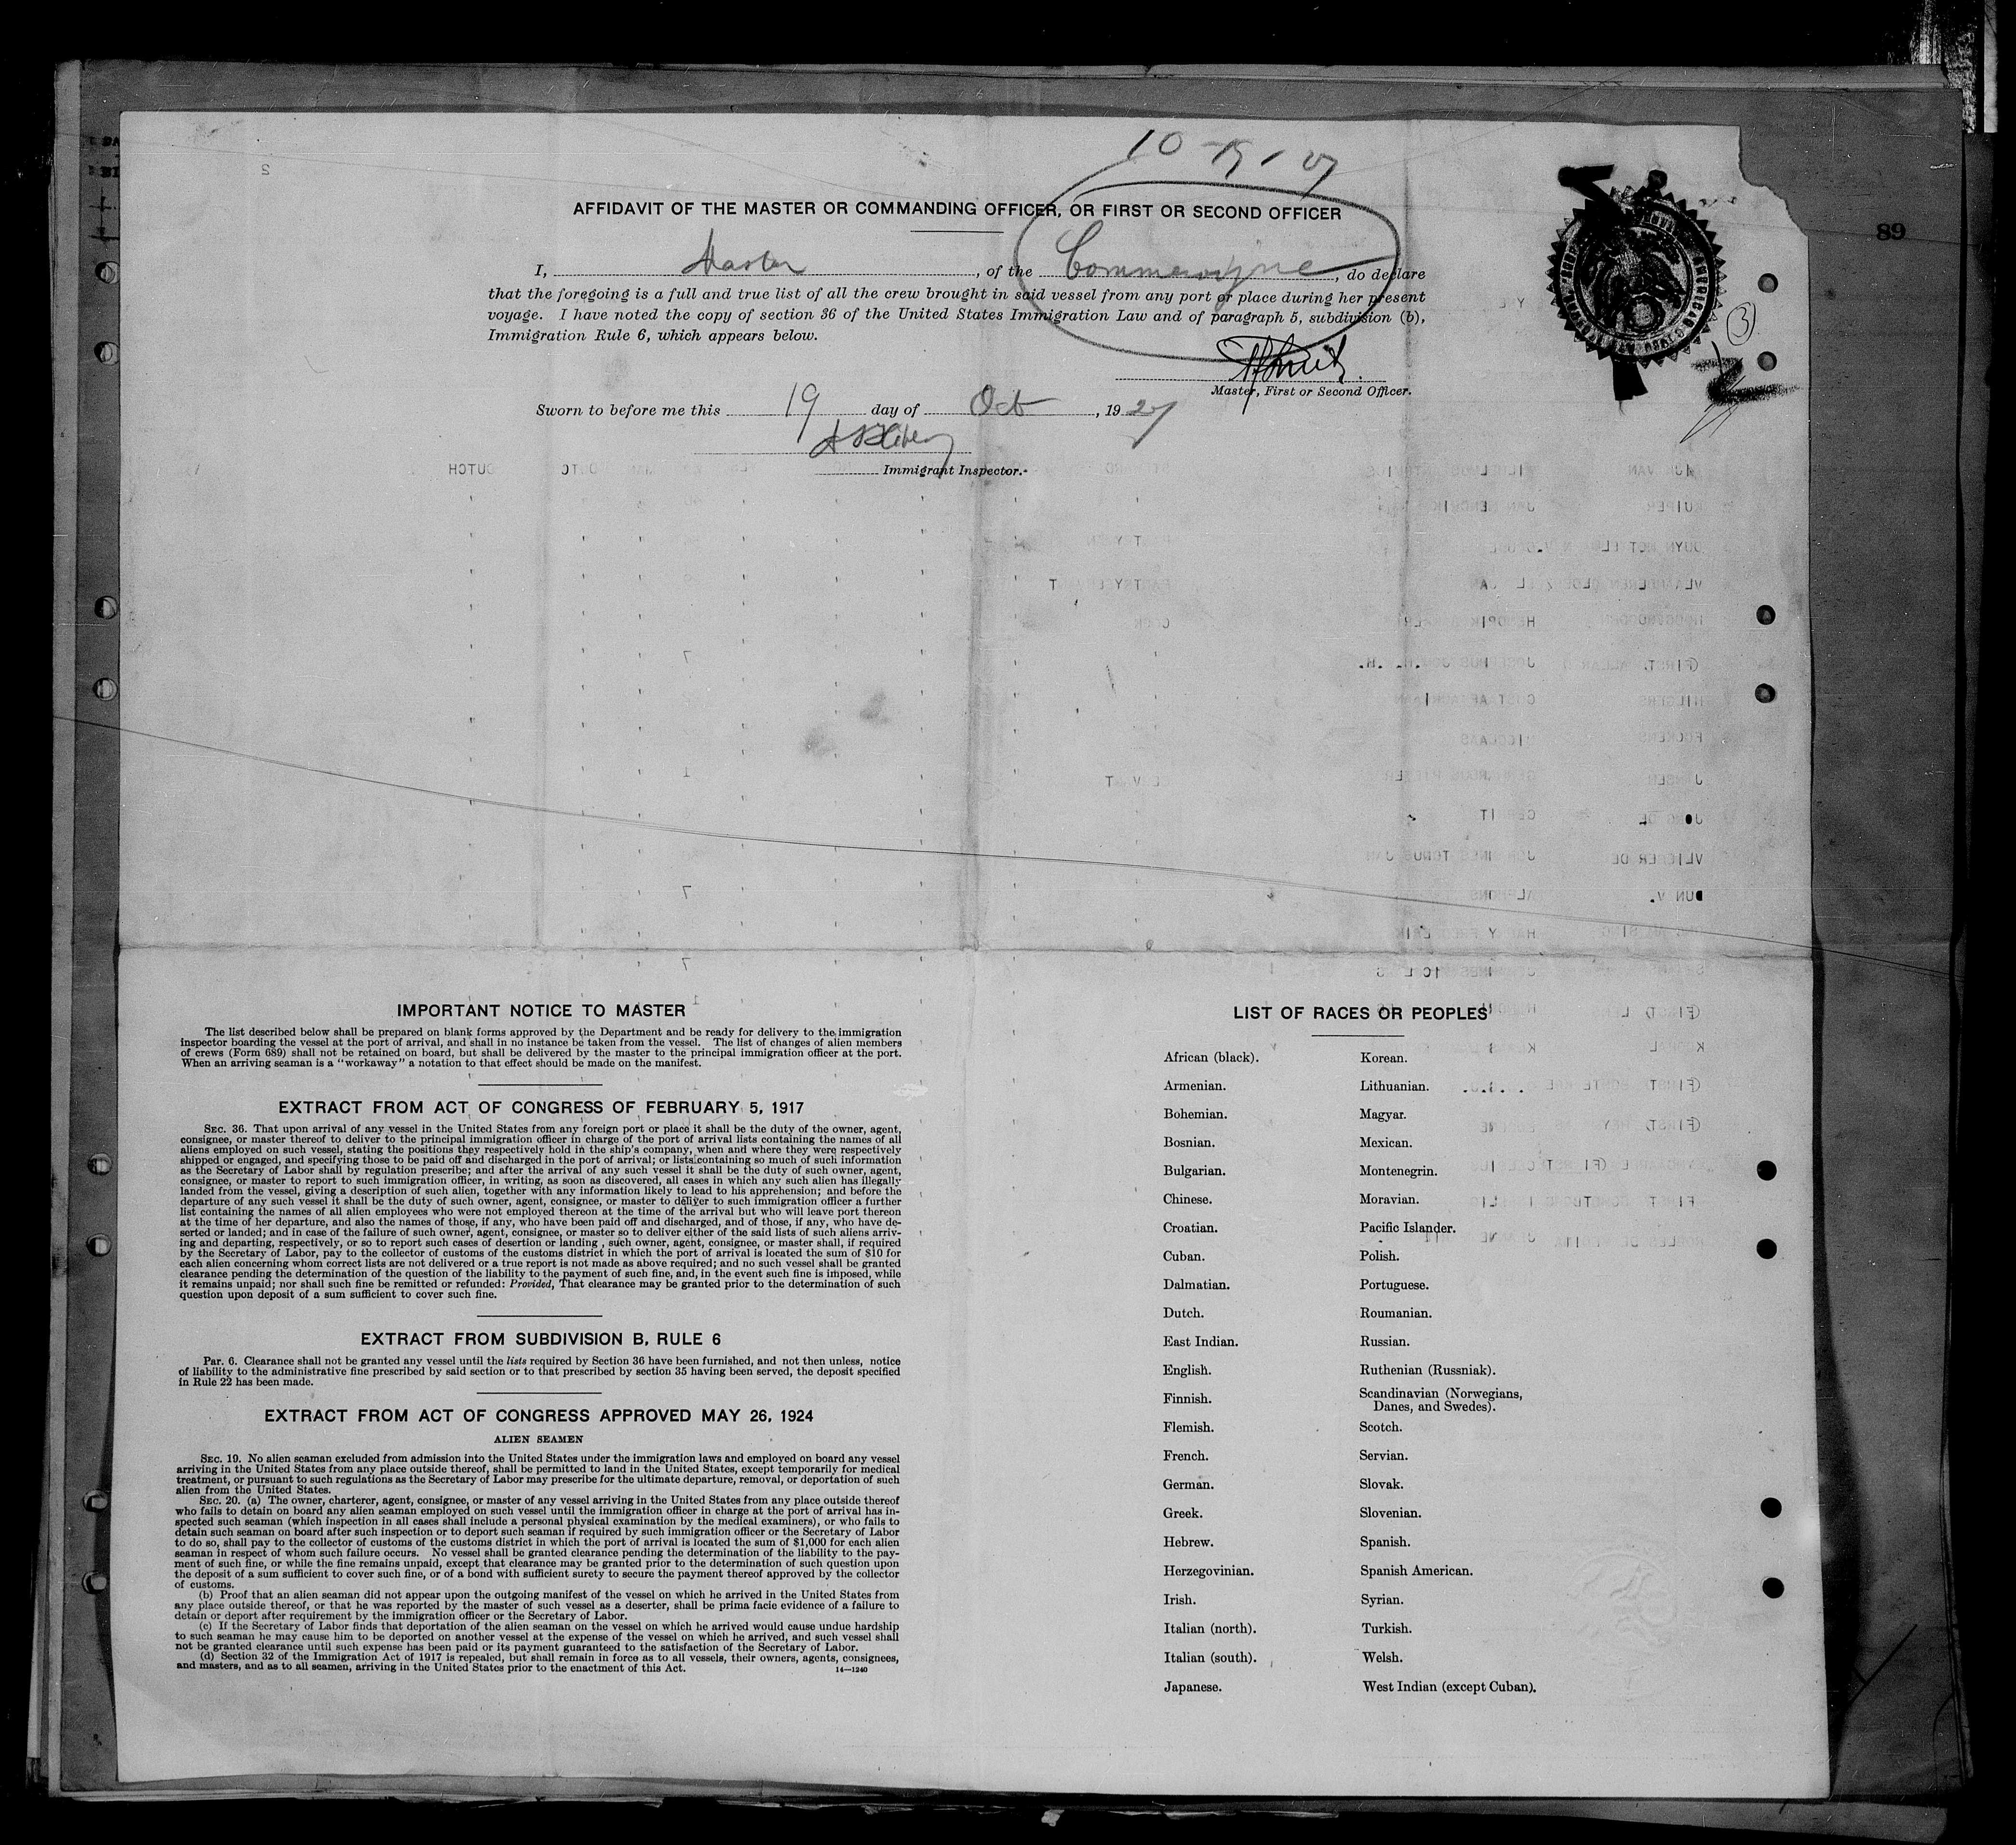 89
AFFIDAVIT OF THE MASTER OR COMMANDING OFFICER, OR FIRST OR SECOND OFFICER
I, Master, of the, do declare
that the foregoing is a full and true list of all the crew brought in said vessel from any port or place during her present
voyage. I have noted the copy of section 36 of the United States Immigration Law and of paragraph 5, subdivision (b),
Immigration Rule 6, which appears below.
3
Master, First or Second Officer.
Sworn to before me this 19 day of Oct, 1927
Immigrant Inspector.
IMPORTANT NOTICE TO MASTER
The list described below shall be prepared on blank forms approved by the Department and be ready for delivery to the immigration
inspector boarding the vessel at the port of arrival, and shall in no instance be taken from the vessel. The list of changes of alien members
of crews (Form 689) shall not be retained on board, but shall be delivered by the master to the principal immigration officer at the port.
When an arriving seaman is a "workaway" a notation to that effect should be made on the manifest.
EXTRACT FROM ACT OF CONGRESS OF FEBRUARY 5, 1917
SEC. 36. That upon arrival of any vessel in the United States from any foreign port or place it shall be the duty of the owner, agent,
consignee, or master thereof to deliver to the principal immigration officer in charge of the port of arrival lists containing the names of all
aliens employed on such vessel, stating the positions they respectively hold in the ship's company, when and where they were respectively
shipped or engaged, and specifying those to be paid off and discharged in the port of arrival; or lists containing so much of such information
as the Secretary of Labor shall by regulation prescribe; and after the arrival of any such vessel it shall be the duty of such owner, agent,
consignee, or master to report to such immigration officer, in writing, as soon as discovered, all cases in which any such alien has illegally
landed from the vessel, giving a description of such alien, together with any information likely to lead to his apprehension; and before the
departure of any such vessel it shall be the duty of such owner, agent, consignee, or master to deliver to such immigration officer a further
list containing the names of all alien employees who were not employed thereon at the time of the arrival but who will leave port thereon
at the time of her departure, and also the names of those, if any, who have been paid off and discharged, and of those, if any, who have de-
serted or landed; and in case of the failure of such owner, agent, consignee, or master so to deliver either of the said lists of such aliens arriv-
ing and departing, respectively, or so to report such cases of desertion or landing, such owner, agent, consignee, or master shall, if required
by the Secretary of Labor, pay to the collector of customs of the customs district in which the port of arrival is located the sum of $10 for
each alien concerning whom correct lists are not delivered or a true report is not made as above required; and no such vessel shall be granted
clearance pending the determination of the question of the liability to the payment of such fine, and, in the event such fine is imposed, while
it remains unpaid; nor shall such fine be remitted or refunded: Provided, That clearance may be granted prior to the determination of such
question upon deposit of a sum sufficient to cover such fine.
EXTRACT FROM SUBDIVISION B, RULE 6
Par. 6. Clearance shall not be granted any vessel until the lists required by Section 36 have been furnished, and not then unless, notice
of liability to the administrative fine prescribed by said section or to that prescribed by section 35 having been served, the deposit specified
in Rule 22 has been made.
EXTRACT FROM ACT OF CONGRESS APPROVED MAY 26, 1924
ALIEN SEAMEN
SEC. 19. No alien seaman excluded from admission into the United States under the immigration laws and employed on board any vessel
arriving in the United States from any place outside thereof, shall be permitted to land in the United States, except temporarily for medical
treatment, or pursuant to such regulations as the Secretary of Labor may prescribe for the ultimate departure, removal, or deportation of such
alien from the United States.
SEC. 20. (a) The owner, charterer, agent, consignee, or master of any vessel arriving in the United States from any place outside thereof
who fails to detain on board any alien seaman employed on such vessel until the immigration officer in charge at the port of arrival has in-
spected such seaman (which inspection in all cases shall include a personal physical examination by the medical examiners), or who fails to
detain such seaman on board after such inspection or to deport such seaman if required by such immigration officer or the Secretary of Labor
to do so, shall pay to the collector of customs of the customs district in which the port of arrival is located the sum of $1,000 for each alien
seaman in respect of whom such failure occurs. No vessel shall be granted clearance pending the determination of the liability to the pay-
ment of such fine, or while the fine remains unpaid, except that clearance may be granted prior to the determination of such question upon
the deposit of a sum sufficient to cover such fine, or of a bond with sufficient surety to secure the payment thereof approved by the collector
of customs.
(b) Proof that an alien seaman did not appear upon the outgoing manifest of the vessel on which he arrived in the United States from
any place outside thereof, or that he was reported by the master of such vessel as a deserter, shall be prima facie evidence of a failure to
detain or deport after requirement by the immigration officer or the Secretary of Labor.
(c) If the Secretary of Labor finds that deportation of the alien seaman on the vessel on which he arrived would cause undue hardship
to such seaman he may cause him to be deported on another vessel at the expense of the vessel on which he arrived, and such vessel shall
not be granted clearance until such expense has been paid or its payment guaranteed to the satisfaction of the Secretary of Labor.
(d) Section 32 of the Immigration Act of 1917 is repealed, but shall remain in force as to all vessels, their owners, agents, consignees,
and masters, and as to all seamen, arriving in the United States prior to the enactment of this Act.
14—1240
LIST OF RACES OR PEOPLES
African (black). Korean.
Armenian. Lithuanian.
Bohemian. Magyar.
Bosnian. Mexican.
Bulgarian. Montenegrin.
Chinese. Moravian.
Croatian. Pacific Islander.
Cuban. Polish.
Dalmatian. Portuguese.
Dutch. Roumanian.
East Indian. Russian.
English. Ruthenian (Russniak).
Finnish. Scandinavian (Norwegians,
Danes, and Swedes).
Flemish. Scotch.
French. Servian.
German. Slovak.
Greek. Slovenian.
Hebrew. Spanish.
Herzegovinian. Spanish American.
Irish. Syrian.
Italian (north). Turkish.
Italian (south). Welsh.
Japanese. West Indian (except Cuban).